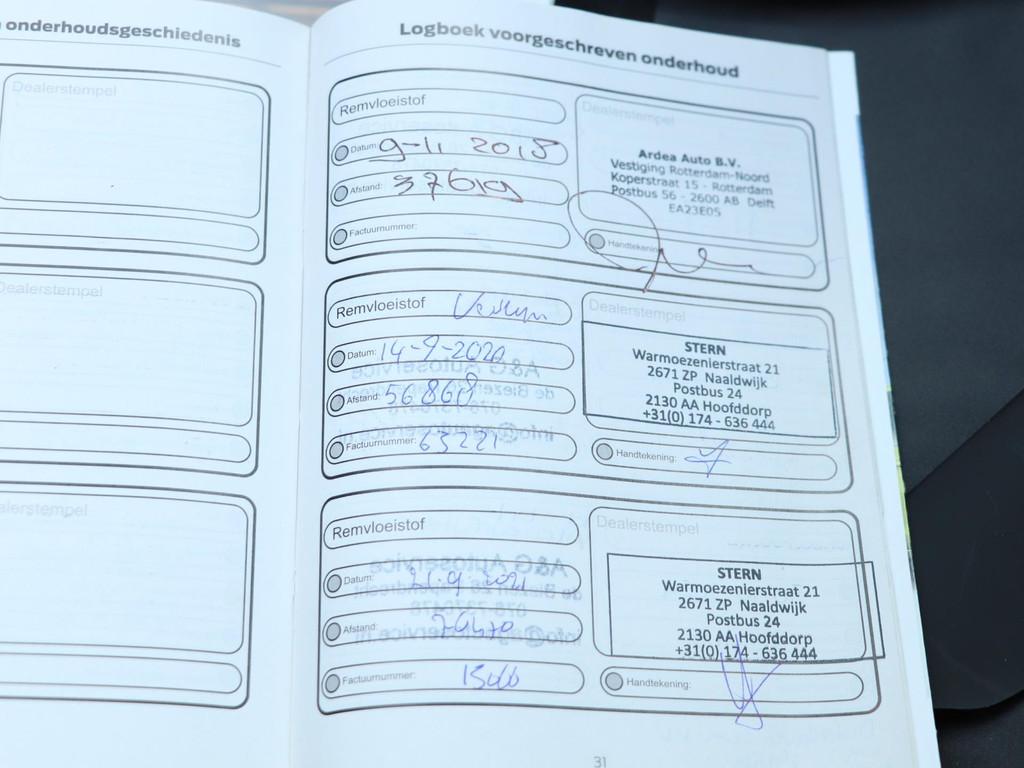 onderhoudsgeschiedenis
Dealerstempel
Dealerstempel
alerstempel
Logboek voorgeschreven onderhoud
Remvloeistof
Datum:
Afstand:
Factuurnummer:
Dealerstempel
Ardea Auto B.V.
Vestiging Rotterdam-Noord
Koperstraat 15 - Rotterdam
Postbus 56 - 2600 AB Delft
EA23E05
Handtekening
Remvloeistof
Datum: 14-9-2020
Afstand: 56868
Factuurnummer: 63221
Dealerstempel
STERN
Warmoezenierstraat 21
2671 ZP Naaldwijk
Postbus 24
2130 AA Hoofddorp
+31(0) 174 - 636 444
Handtekening:
Remvloeistof
Datum:
Afstand:
Factuurnummer:
Dealerstempel
STERN
Warmoezenierstraat 21
2671 ZP Naaldwijk
Postbus 24
2130 AA Hoofddorp
+31(0) 174 - 636 444
Handtekening:
31